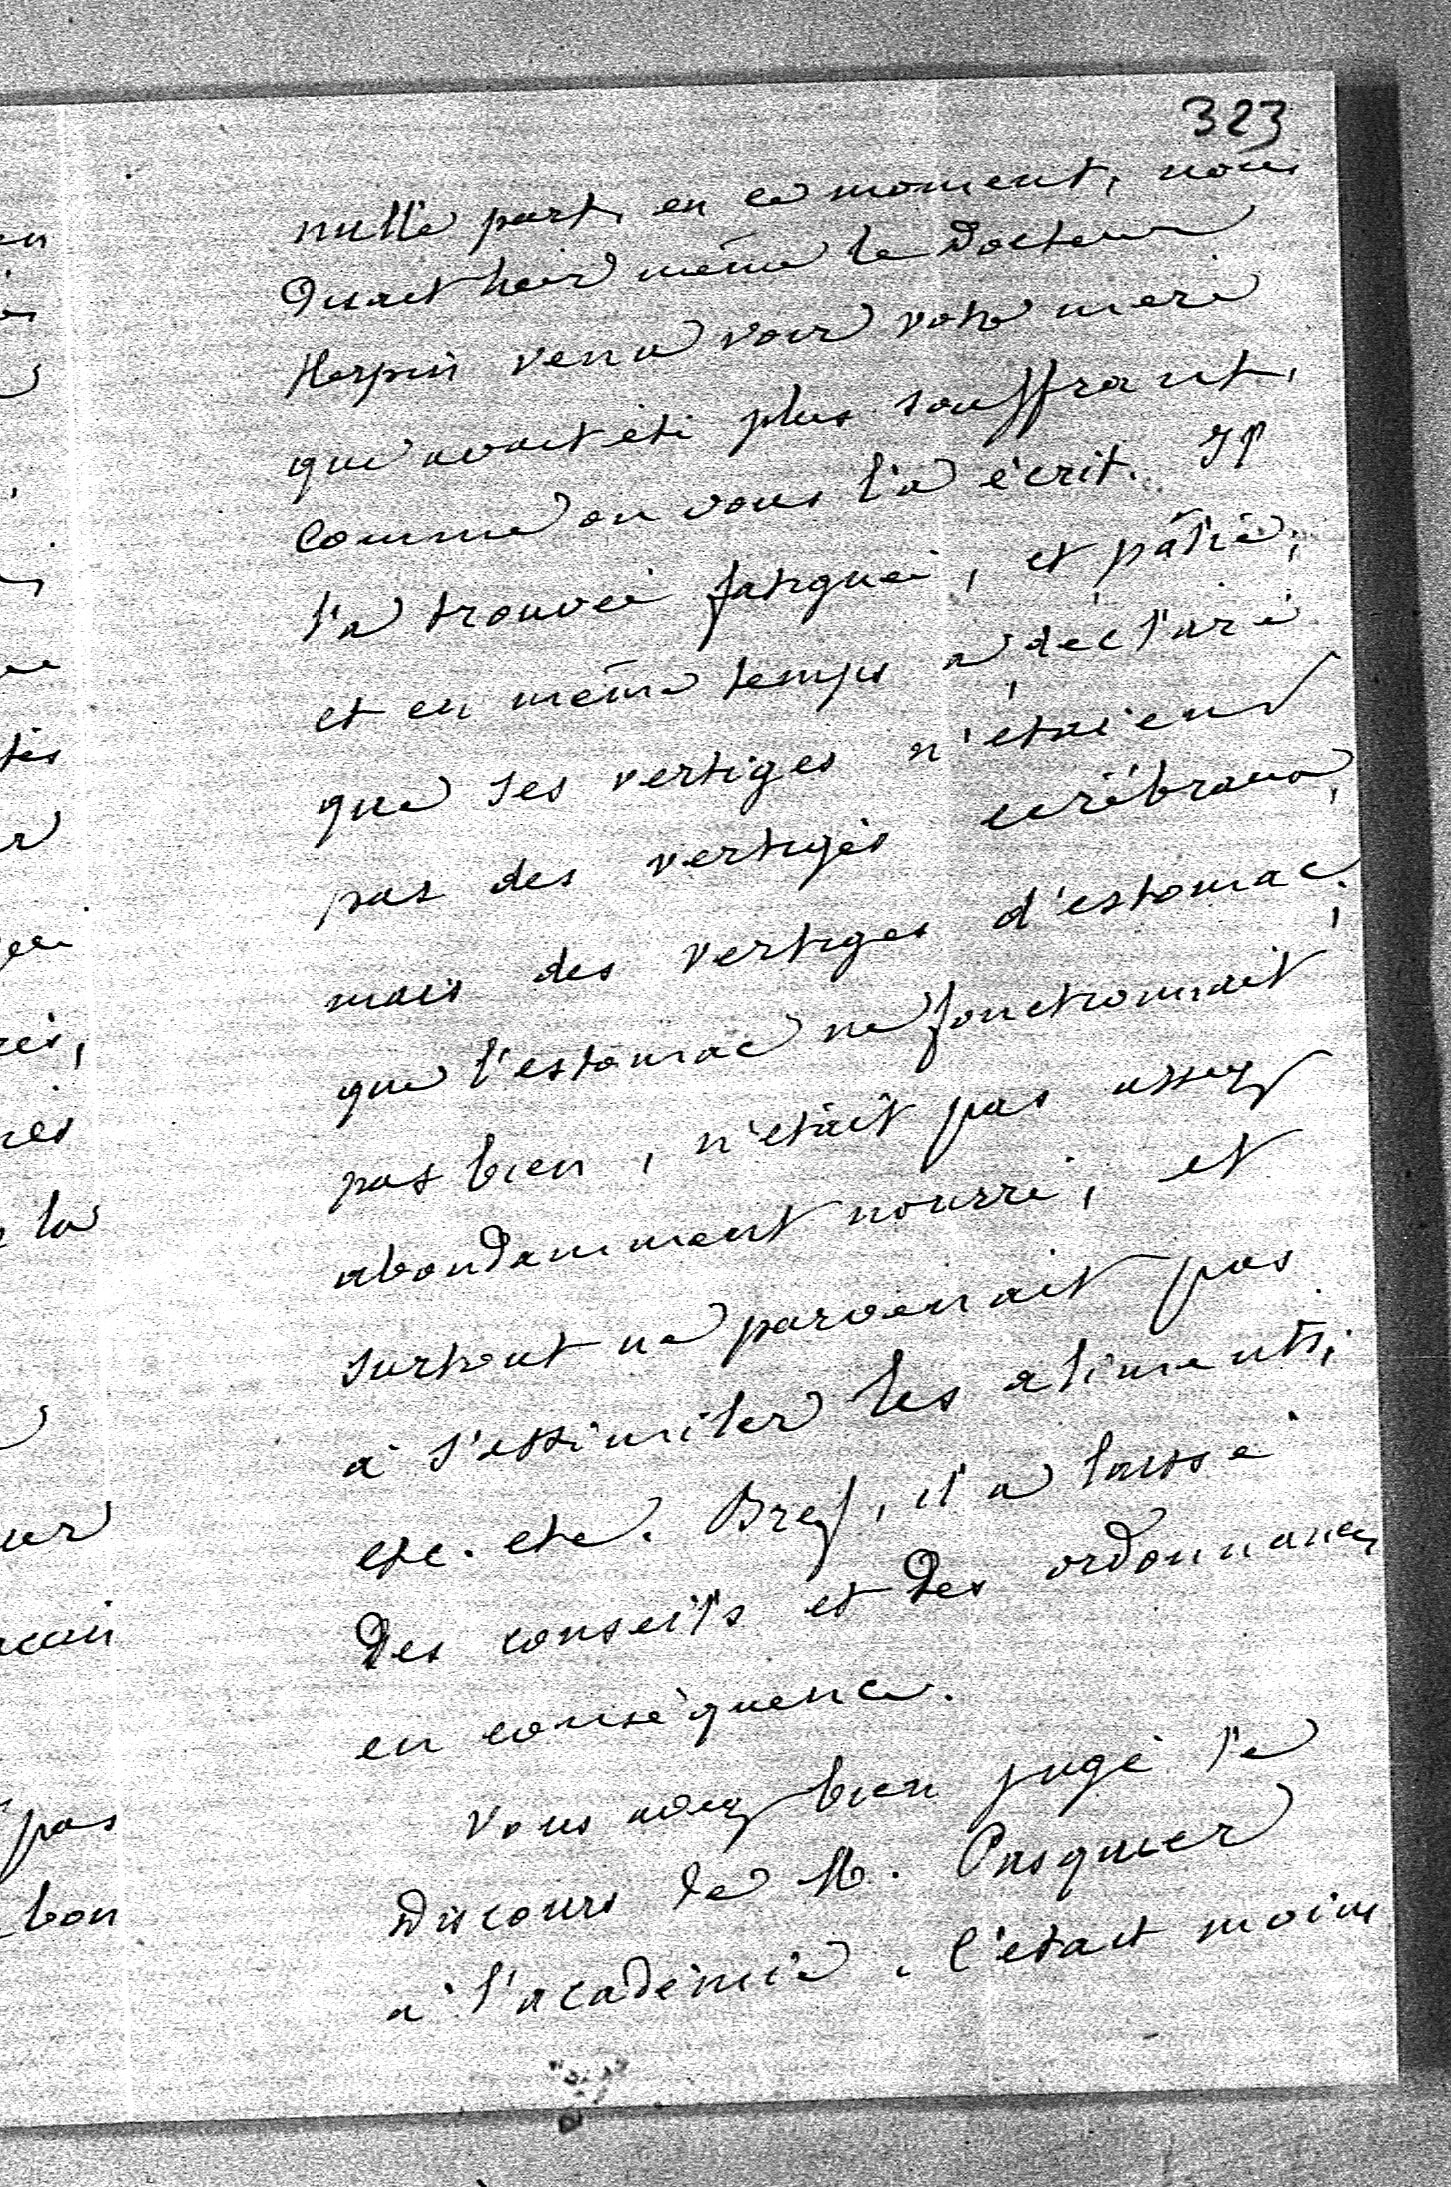 323
nulle part, en ce moment, nous
Disait hier même le Docteur
Herpin venu voir votre mère
qui avait été plus souffrante,
comme on vous l'a écrit. Il
l'a trouvée fatiguée, et pâlie,
et en même temps a déclaré
que ses vertiges n'étaient
pas des vertiges cérébraux,
mais des vertiges d'estomac,
que l'estomac ne fonctionnait
pas bien, n'était pas assez
abondamment nourri, et
surtout ne parvenait pas
à s'assimiler les aliments,
etc. etc. Bref, il a laissé
Des conseils et Des ordonnances
en conséquence.
Vous avez bien jugé le
Discours de M. Pasquier
à l'académie. C'était moins
en
tés
rés,
la
pas
bon